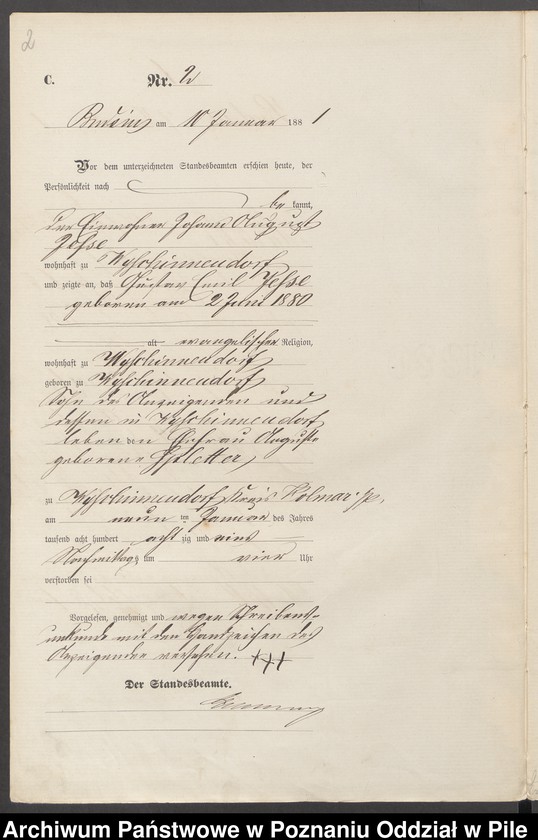 2
C. Nr. 2
Budsin am 10 Januar 1881
Vor dem unterzeichneten Standesbeamten erschien heute, der
Persönlichkeit nach
be kannt,
der Einwohner Johann August
Jesse
wohnhaft zu
und zeigte an, daß Gustav Emil Jesse
geboren am 2 Juni 1880
alt evangelischer Religion,
wohnhaft zu
geboren zu
Sohn des Anzeigenden und
dessen in
lebenden Ehefrau Auguste
geborene
zu Kreis Kolmar i/P,
am neun ten Januar des Jahres
tausend acht hundert acht zig und eins
Nachmittags um vier Uhr
verstorben sei
Vorgelesen, genehmigt und wegen Schreibens-
unkunde mit den Handzeichen des
Anzeigenden versehen. +++
Der Standesbeamte.
Archiwum Państwowe w Poznaniu Oddział w Pile